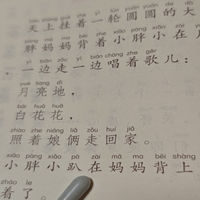 天上挂着一轮圆圆的大
胖妈妈背着小胖小在月
一边走一边唱着歌儿：
yuè liang dì
月亮地，
bái huā huā
白花花，
zhào zhe niáng liǎ zǒu huí jiā
照着娘俩走回家。
xiǎo pàng xiǎo pā zài mā ma bèi shàng
小胖小趴在妈妈背上
zháo le
着了。